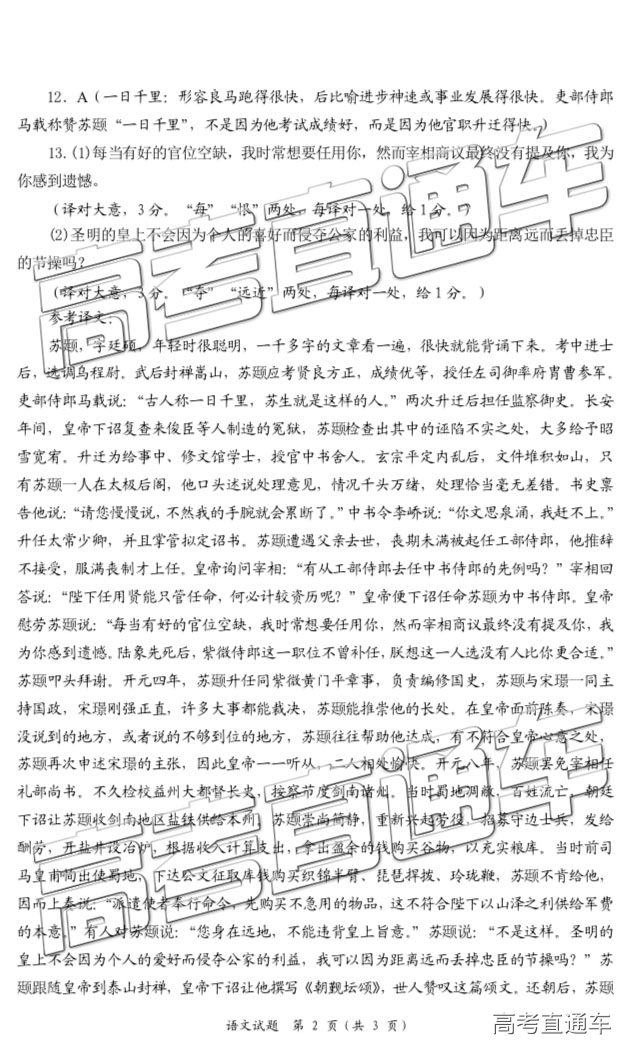 12．A（一日千里：形容良马跑得很快，后比喻进步神速或事业发展得很快。吏部侍郎
马载称赞苏颋“一日千里”，不是因为他考试成绩好，而是因为他官职升迁得快。）
13.(1)每当有好的官位空缺，我时常想要任用你，然而宰相商议最终没有提及你，我为
你感到遗憾。
（译对大意，3分。“每”“恨”两处，每译对一处，给1分。）
(2)圣明的皇上不会因为个人的喜好而侵夺公家的利益，我可以因为距离远而丢掉忠臣
的节操吗？
（译对大意，3分。“夺”“远近”两处，每译对一处，给1分。）
参考译文：
苏颋，字廷硕，年轻时很聪明，一千多字的文章看一遍，很快就能背诵下来。考中进士
后，选调乌程尉。武后封禅嵩山，苏颋应考贤良方正，成绩优等，授任左司御率府胄曹参军。
吏部侍郎马载说：“古人称一日千里，苏生就是这样的人。”两次升迁后担任监察御史。长安
年间，皇帝下诏复查来俊臣等人制造的冤狱，苏颋检查出其中的诬陷不实之处，大多给予昭
雪宽宥。升迁为给事中、修文馆学士，授官中书舍人。玄宗平定内乱后，文件堆积如山，只
有苏颋一人在太极后阁，他口头述说处理意见，情况千头万绪，处理恰当毫无差错。书史禀
告他说：“请您慢慢说，不然我的手腕就会累断了。”中书令李峤说：“你文思泉涌，我赶不上。”
升任太常少卿，并且掌管拟定诏书。苏颋遭遇父亲去世，丧期未满被起任工部侍郎，他推辞
不接受，服满丧制才上任。皇帝询问宰相：“有从工部侍郎去任中书侍郎的先例吗？”宰相回
答说：“陛下任用贤能只管任命，何必计较资历呢？”皇帝便下诏任命苏颋为中书侍郎。皇帝
慰劳苏颋说：“每当有好的官位空缺，我时常想要任用你，然而宰相商议最终没有提及你，我
为你感到遗憾。陆象先死后，紫微侍郎这一职位不曾补任，朕想这一人选没有人比你更合适。”
苏颋叩头拜谢。开元四年，苏颋升任同紫微黄门平章事，负责编修国史，苏颋与宋璟一同主
持国政，宋璟刚强正直，许多大事都能裁决，苏颋能推崇他的长处。在皇帝面前陈奏，宋璟
没说到的地方，或者说的不够到位的地方，苏颋往往帮助他达成，有不符合皇帝心意之处，
苏颋再次申述宋璟的主张，因此皇帝一一听从，二人相处愉快。开元八年，苏颋罢免宰相任
礼部尚书。不久检校益州大都督长史，按察节度剑南诸州。当时蜀地凋敝，百姓流亡，朝廷
下诏让苏颋收剑南地区盐铁供给本州。苏颋崇尚简静，重新兴起劳役，招募守边士兵，发给
酬劳，开盐井设冶炉，根据收入计算支出，拿出盈余的钱购买谷物，以充实粮库。当时前司
马皇甫恂出使蜀地，下达公文征取库钱购买织锦半臂、琵琶捍拨、玲珑鞭，苏颋不肯给他，
因而上奏说：“派遣使者奉行命令，先购买不急用的物品，这不符合陛下以山泽之利供给军费
的本意。”有人对苏颋说：“您身在远地，不能违背皇上旨意。”苏颋说：“不是这样。圣明的
皇上不会因为个人的爱好而侵夺公家的利益，我可以因为距离远而丢掉忠臣的节操吗？”苏
颋跟随皇帝到泰山封禅，皇帝下诏让他撰写《朝觐坛颂》，世人赞叹这篇颂文。还朝后，苏颋
语文试题 第 2 页(共 3 页)
高考直通车
高考直通车
高考直通车